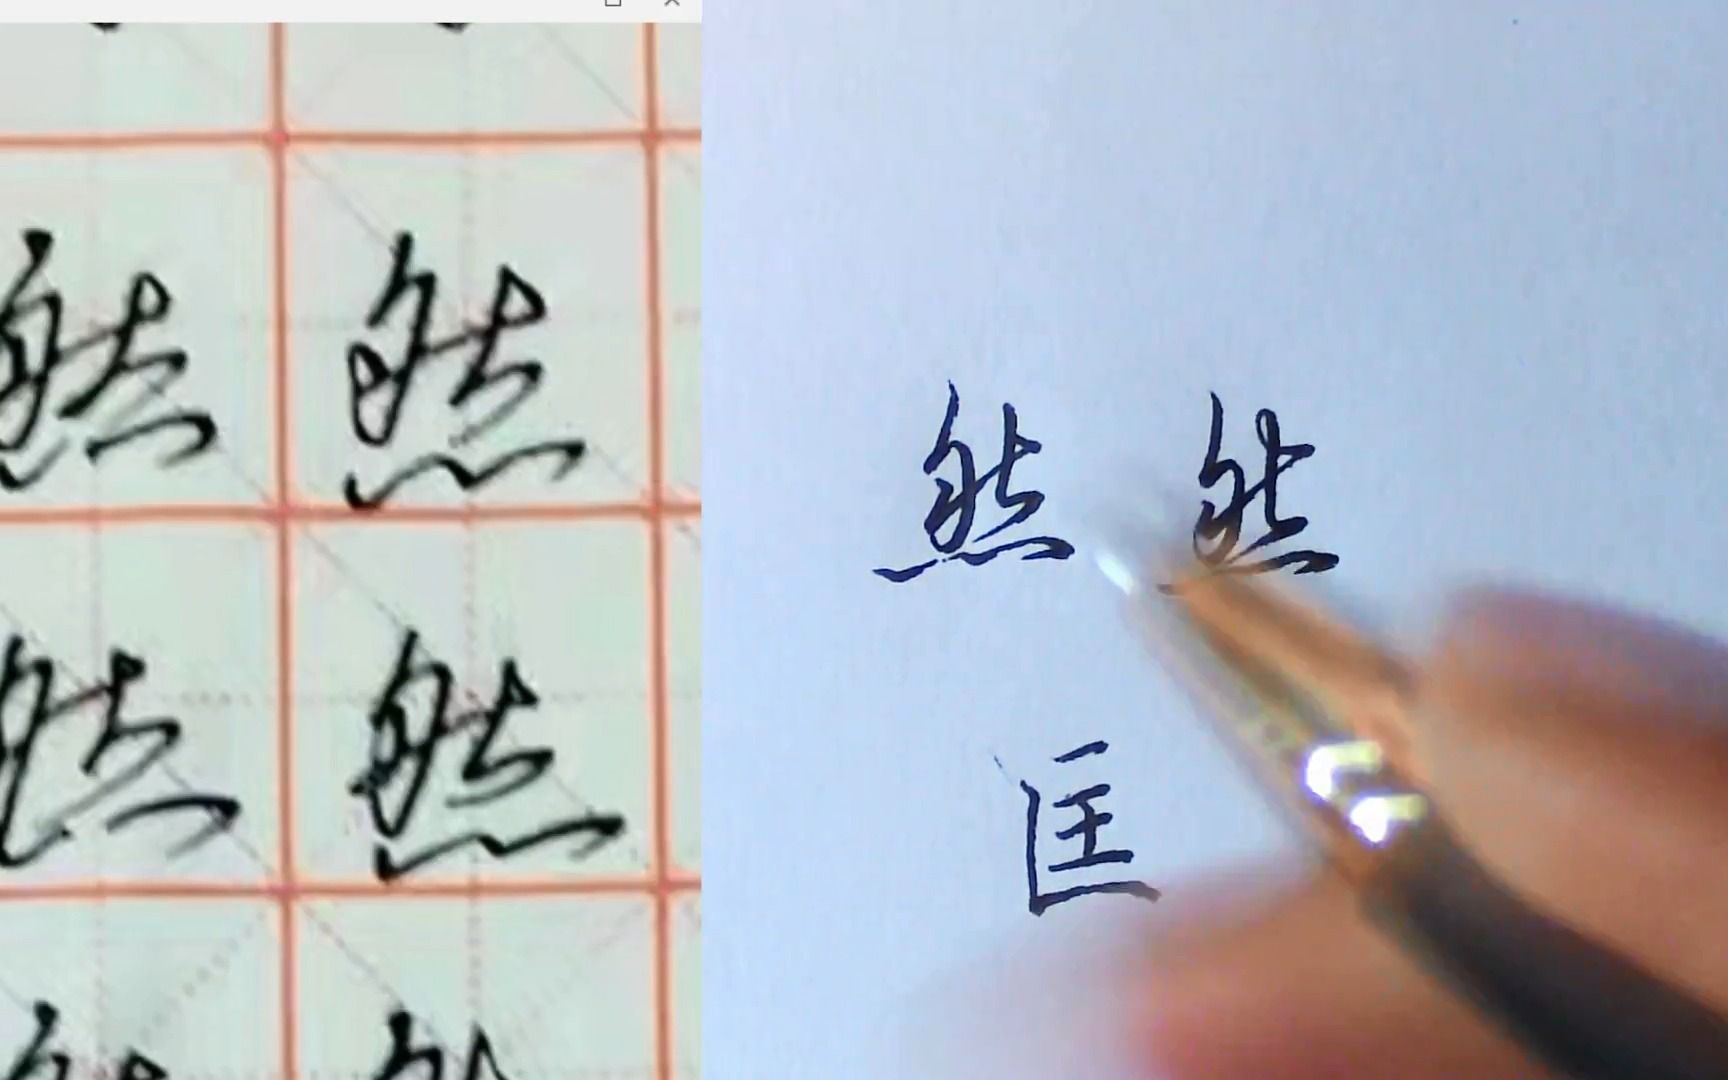 然 然
然 然
然 然
匡